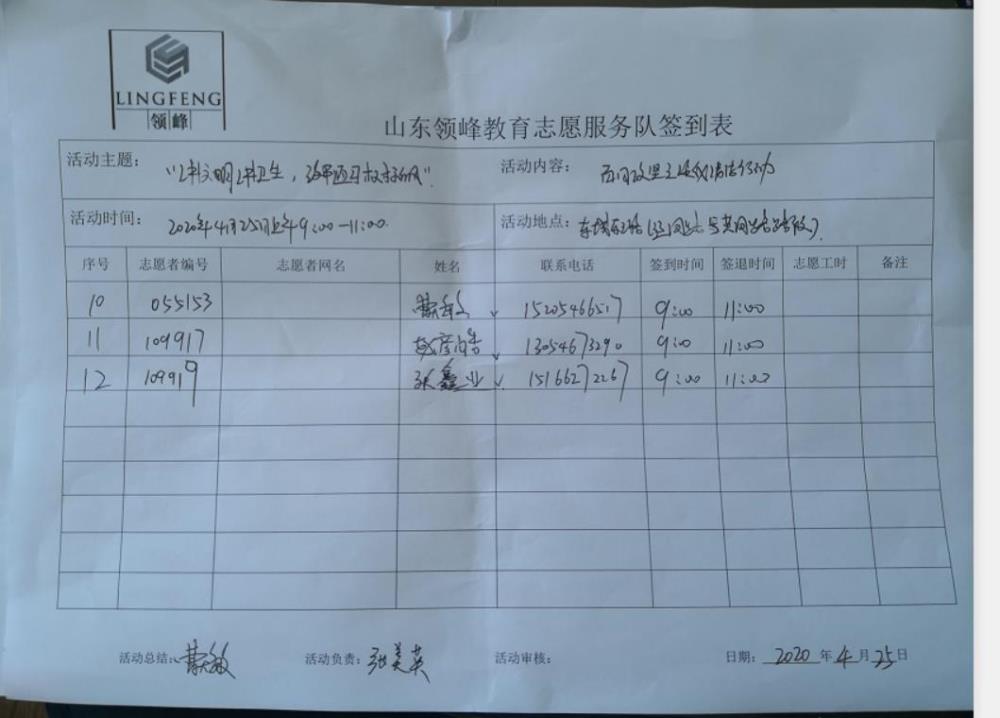 LINGFENG
领峰
山东领峰教育志愿服务队签到表
活动主题： "讲文明讲卫生， 活动内容：
活动时间： 2020年4月25日上午9:00-11:00 活动地点：
序号 志愿者编号 志愿者网名 姓名 联系电话 签到时间 签退时间 志愿工时 备注
10 055153 15205466517 9:00 11:00
11 109917 13054673290 9:00 11:00
12 109919 张鑫业 15166272267 9:00 11:00
活动总结： 活动负责：张美英 活动审核： 日期：2020年4月25日